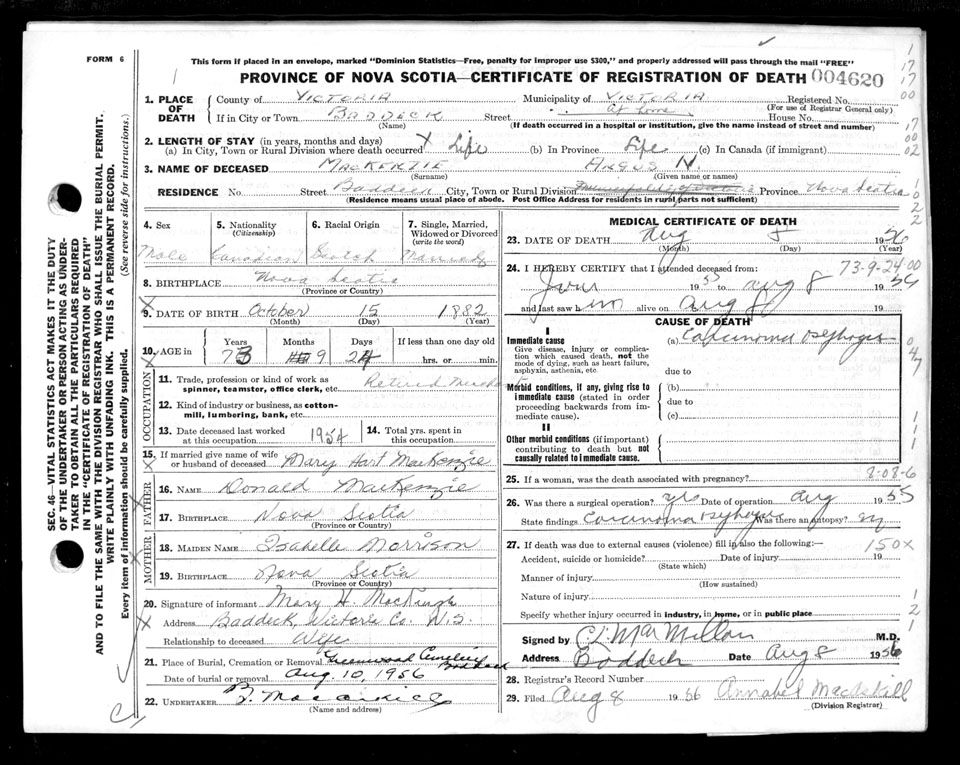 FORM 6
This form if placed in an envelope, marked "Dominion Statistics—Free, penalty for improper use $300," and properly addressed will pass through the mail "FREE"
PROVINCE OF NOVA SCOTIA—CERTIFICATE OF REGISTRATION OF DEATH 004620
1. PLACE OF DEATH County of VICTORIA Municipality of VICTORIA Registered No.
(For use of Registrar General only)
If in City or Town BADDECK Street at home House No.
(Name) (If death occurred in a hospital or institution, give the name instead of street and number)
2. LENGTH OF STAY (in years, months and days)
(a) In City, Town or Rural Division where death occurred X Life (b) In Province Life (c) In Canada (if immigrant)
3. NAME OF DECEASED MACKENZIE ANGUS N.
(Surname) (Given name or names)
RESIDENCE No. Street Baddeck City, Town or Rural Division Province Nova Scotia
(Residence means usual place of abode. Post Office Address for residents in rural parts not sufficient)
4. Sex 5. Nationality (Citizenship) 6. Racial Origin 7. Single, Married, Widowed or Divorced (write the word)
Male Canadian Scotch Married
8. BIRTHPLACE Nova Scotia
(Province or Country)
9. DATE OF BIRTH October 15 1882
(Month) (Day) (Year)
10. AGE in Years Months Days If less than one day old
73 9 24 hrs. or min.
OCCUPATION
11. Trade, profession or kind of work as spinner, teamster, office clerk, etc. Retired Merchant
12. Kind of industry or business, as cotton-mill, lumbering, bank, etc.
13. Date deceased last worked at this occupation 1954 14. Total yrs. spent in this occupation
15. If married give name of wife or husband of deceased Mary Hart MacKenzie
FATHER
16. NAME Donald MacKenzie
17. BIRTHPLACE Nova Scotia
(Province or Country)
MOTHER
18. MAIDEN NAME Isabelle Morrison
19. BIRTHPLACE Nova Scotia
(Province or Country)
20. Signature of informant Mary H. MacKenzie
Address Baddeck, Victoria Co. N.S.
Relationship to deceased Wife
21. Place of Burial, Cremation or Removal Greenwood Cemetery Baddeck
Date of burial or removal Aug. 10, 1956
22. UNDERTAKER
(Name and address)
MEDICAL CERTIFICATE OF DEATH
23. DATE OF DEATH Aug 8 1956
(Month) (Day) (Year)
73-9-24-00
24. I HEREBY CERTIFY that I attended deceased from:
June 1955 to Aug 8 1956
and last saw him alive on Aug 8
CAUSE OF DEATH
I
Immediate cause
Give disease, injury or complication which caused death, not the mode of dying, such as heart failure, asphyxia, asthenia, etc.
(a) Carcinoma
due to
Morbid conditions, if any, giving rise to immediate cause (stated in order proceeding backwards from immediate cause).
(b)
due to
(c)
II
Other morbid conditions (if important) contributing to death but not causally related to immediate cause.
25. If a woman, was the death associated with pregnancy? 8-08-6
26. Was there a surgical operation? yes Date of operation Aug 1955
State findings Carcinoma Was there an autopsy? no
27. If death was due to external causes (violence) fill in also the following:— 150X
Accident, suicide or homicide? Date of injury 19
(State which)
Manner of injury
(How sustained)
Nature of injury
Specify whether injury occurred in industry, in home, or in public place
Signed by C L MacMillan M.D.
Address Baddeck Date Aug 8 1956
28. Registrar's Record Number
29. Filed Aug 8 1956 Annabel MacAskill
(Division Registrar)
SEC. 46—VITAL STATISTICS ACT MAKES IT THE DUTY
OF THE UNDERTAKER OR PERSON ACTING AS UNDER-
TAKER TO OBTAIN ALL THE PARTICULARS REQUIRED
IN THE "CERTIFICATE OF REGISTRATION OF DEATH"
AND TO FILE THE SAME WITH THE DIVISION REGISTRAR WHO SHALL ISSUE THE BURIAL PERMIT.
WRITE PLAINLY WITH UNFADING INK. THIS IS A PERMANENT RECORD.
Every item of information should be carefully supplied. (See reverse side for instructions.)